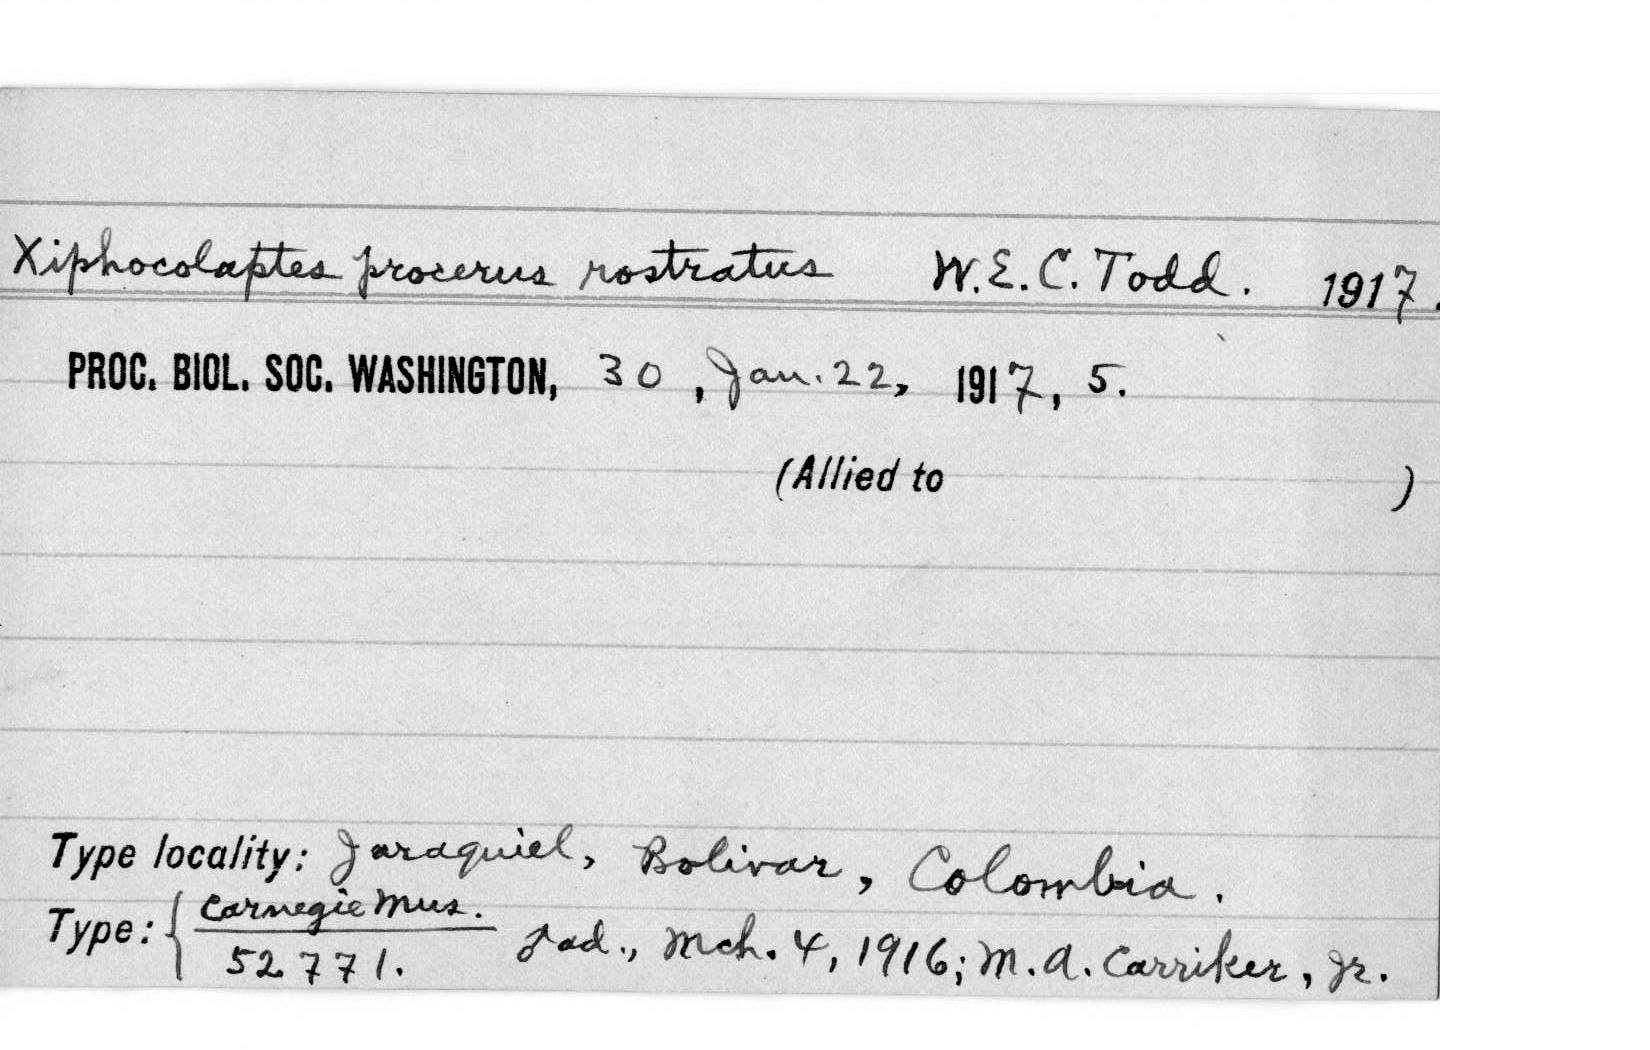 Xiphocolaptes procerus rostratus W.E.C. Todd. 1917.
PROC. BIOL. SOC. WASHINGTON, 30, Jan. 22, 1917, 5.
(Allied to )
Type locality: Jaraquiel, Bolivar, Colombia.
Type: { Carnegie Mus.
52771. ♂ad., Mch. 4, 1916; M. A. Carriker, Jr.